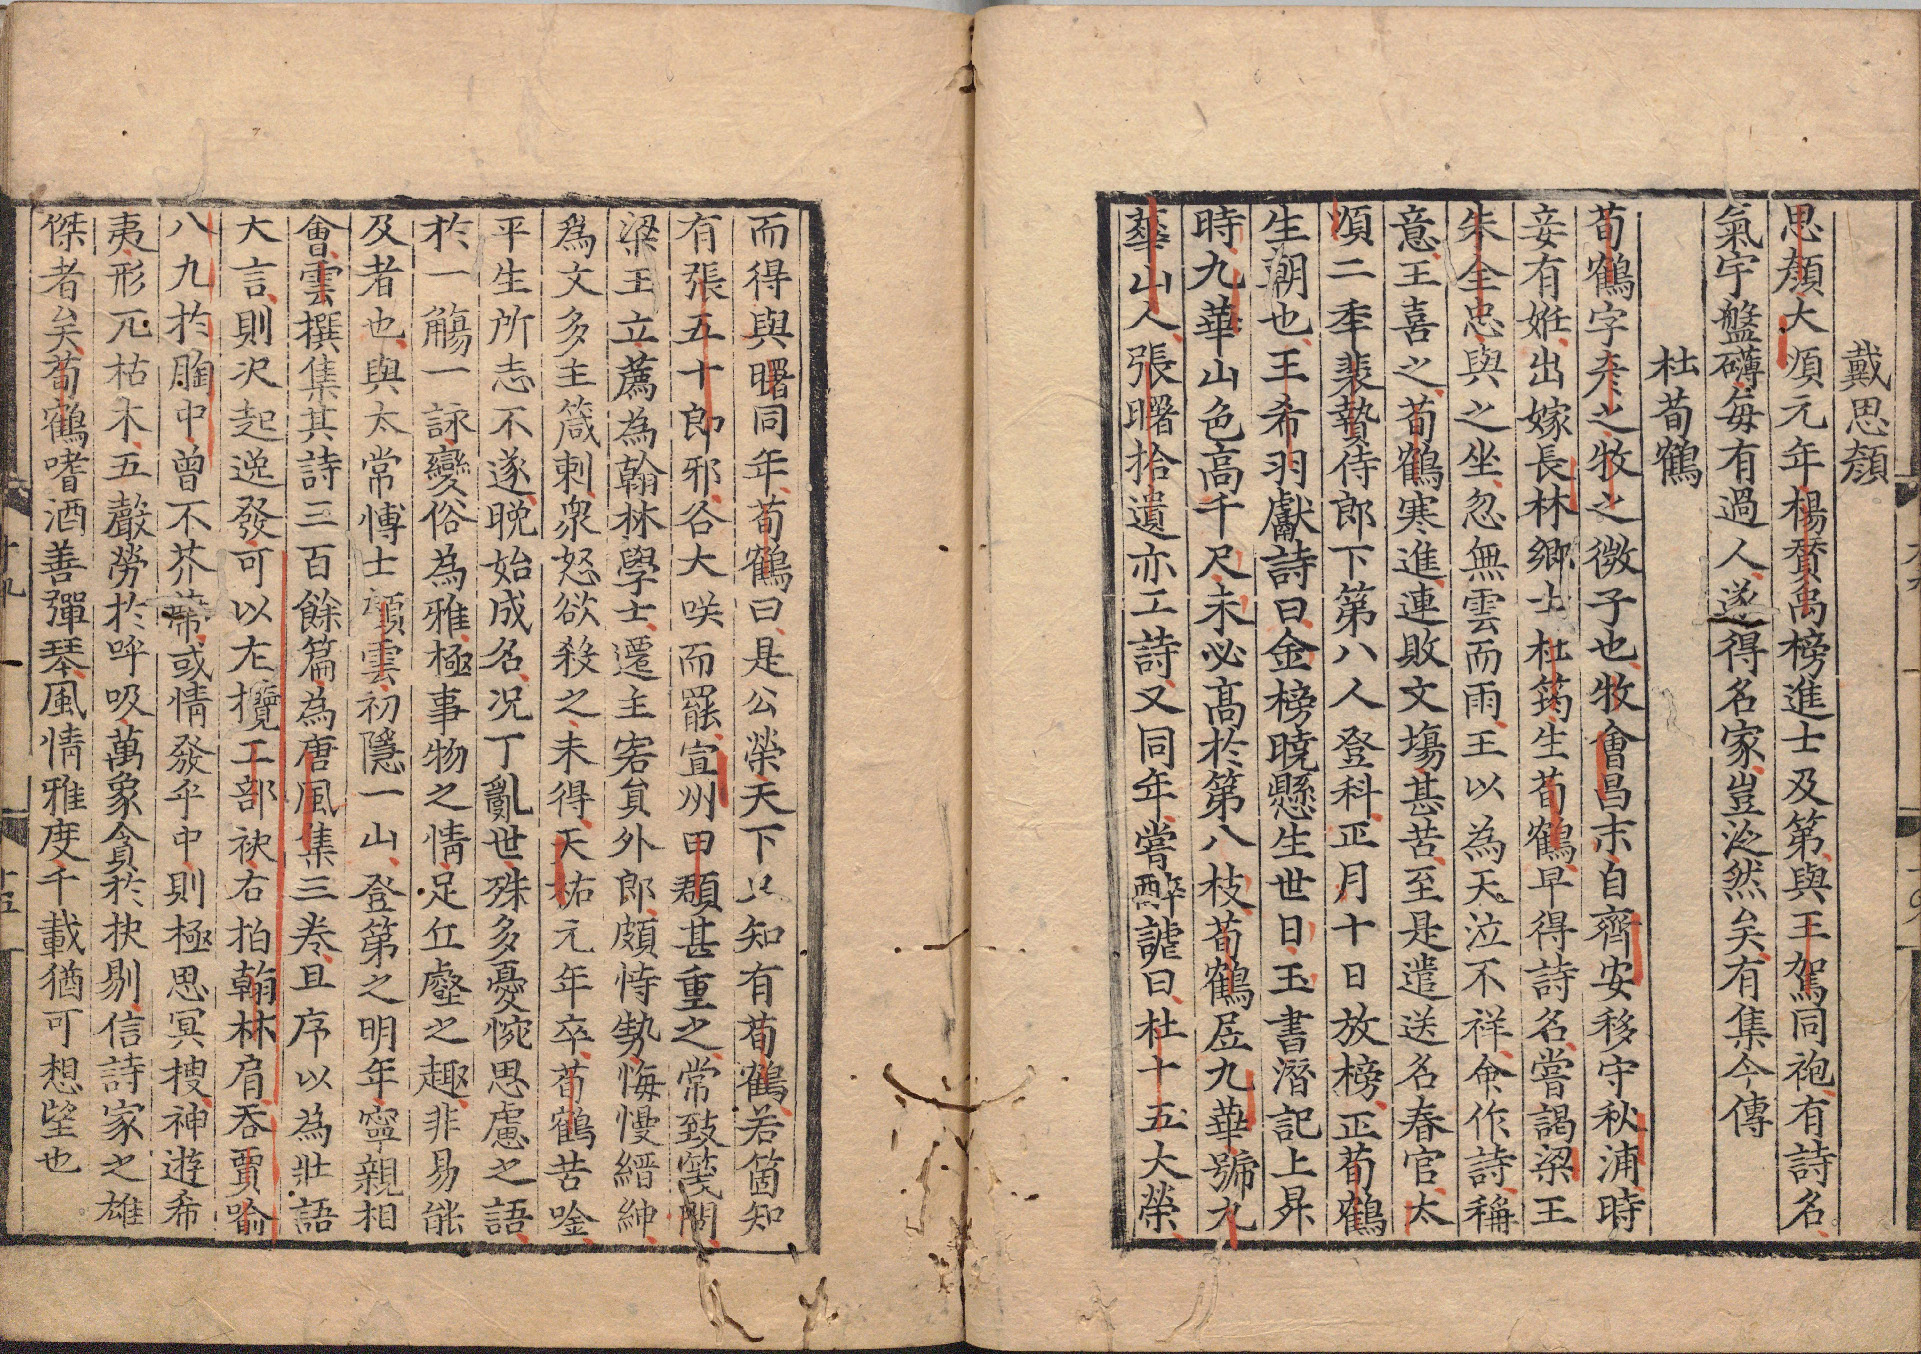 戴思顔
思顔大順元年楊贊禹榜進士及第與王駕同袍有詩名
氣宇盤礴每有過人遂得名家豈泛然矣有集今傳
杜荀鶴
荀鶴字彥之牧之微子也牧會昌末自齊安移守秋浦時
妾有姙出嫁長林鄉士杜筠生荀鶴早得詩名嘗謁梁王
朱全忠與之坐忽無雲而雨王以為天泣不祥命作詩稱
意王喜之荀鶴寒進連敗文塲甚苦至是遣送名春官太
順二年裴贄侍郎下第八人登科正月十日放榜正荀鶴
生朝也王希羽獻詩曰金榜曉懸生世日玉書潛記上昇
時九華山色高千尺未必髙於第八枝荀鶴居九華號九
華山人張曙拾遺亦工詩又同年嘗醉謔曰杜十五大榮
而得與曙同年荀鶴曰是公榮天下只知有荀鶴若箇知
有張五十郎邪各大咲而罷宣州田頵甚重之常致箋問
梁王立薦為翰林學士遷主客貟外郎頗恃勢悔慢縉紳
爲文多主箴刺衆怒欲殺之未得天祐元年卒荀鶴苦唫
平生所志不遂晚始成名况丁亂世殊多憂惋思慮之語
於一觴一詠變俗為雅極事物之情足丘壑之趣非易能
及者也與太常博士顧雲初隱一山登第之明年寧親相
會雲撰集其詩三百餘篇為唐風集三卷且序以為壯語
大言則決起逸發可以左攬工部袂右拍翰林肩吞賈喻
八九於胷中曾不芥蔕或情發乎中則極思冥搜神遊希
夷形兀枯木五聲勞於呼吸萬象貪於抉剔信詩家之雄
傑者矣荀鶴嗜酒善彈琴風情雅度千載猶可想望也